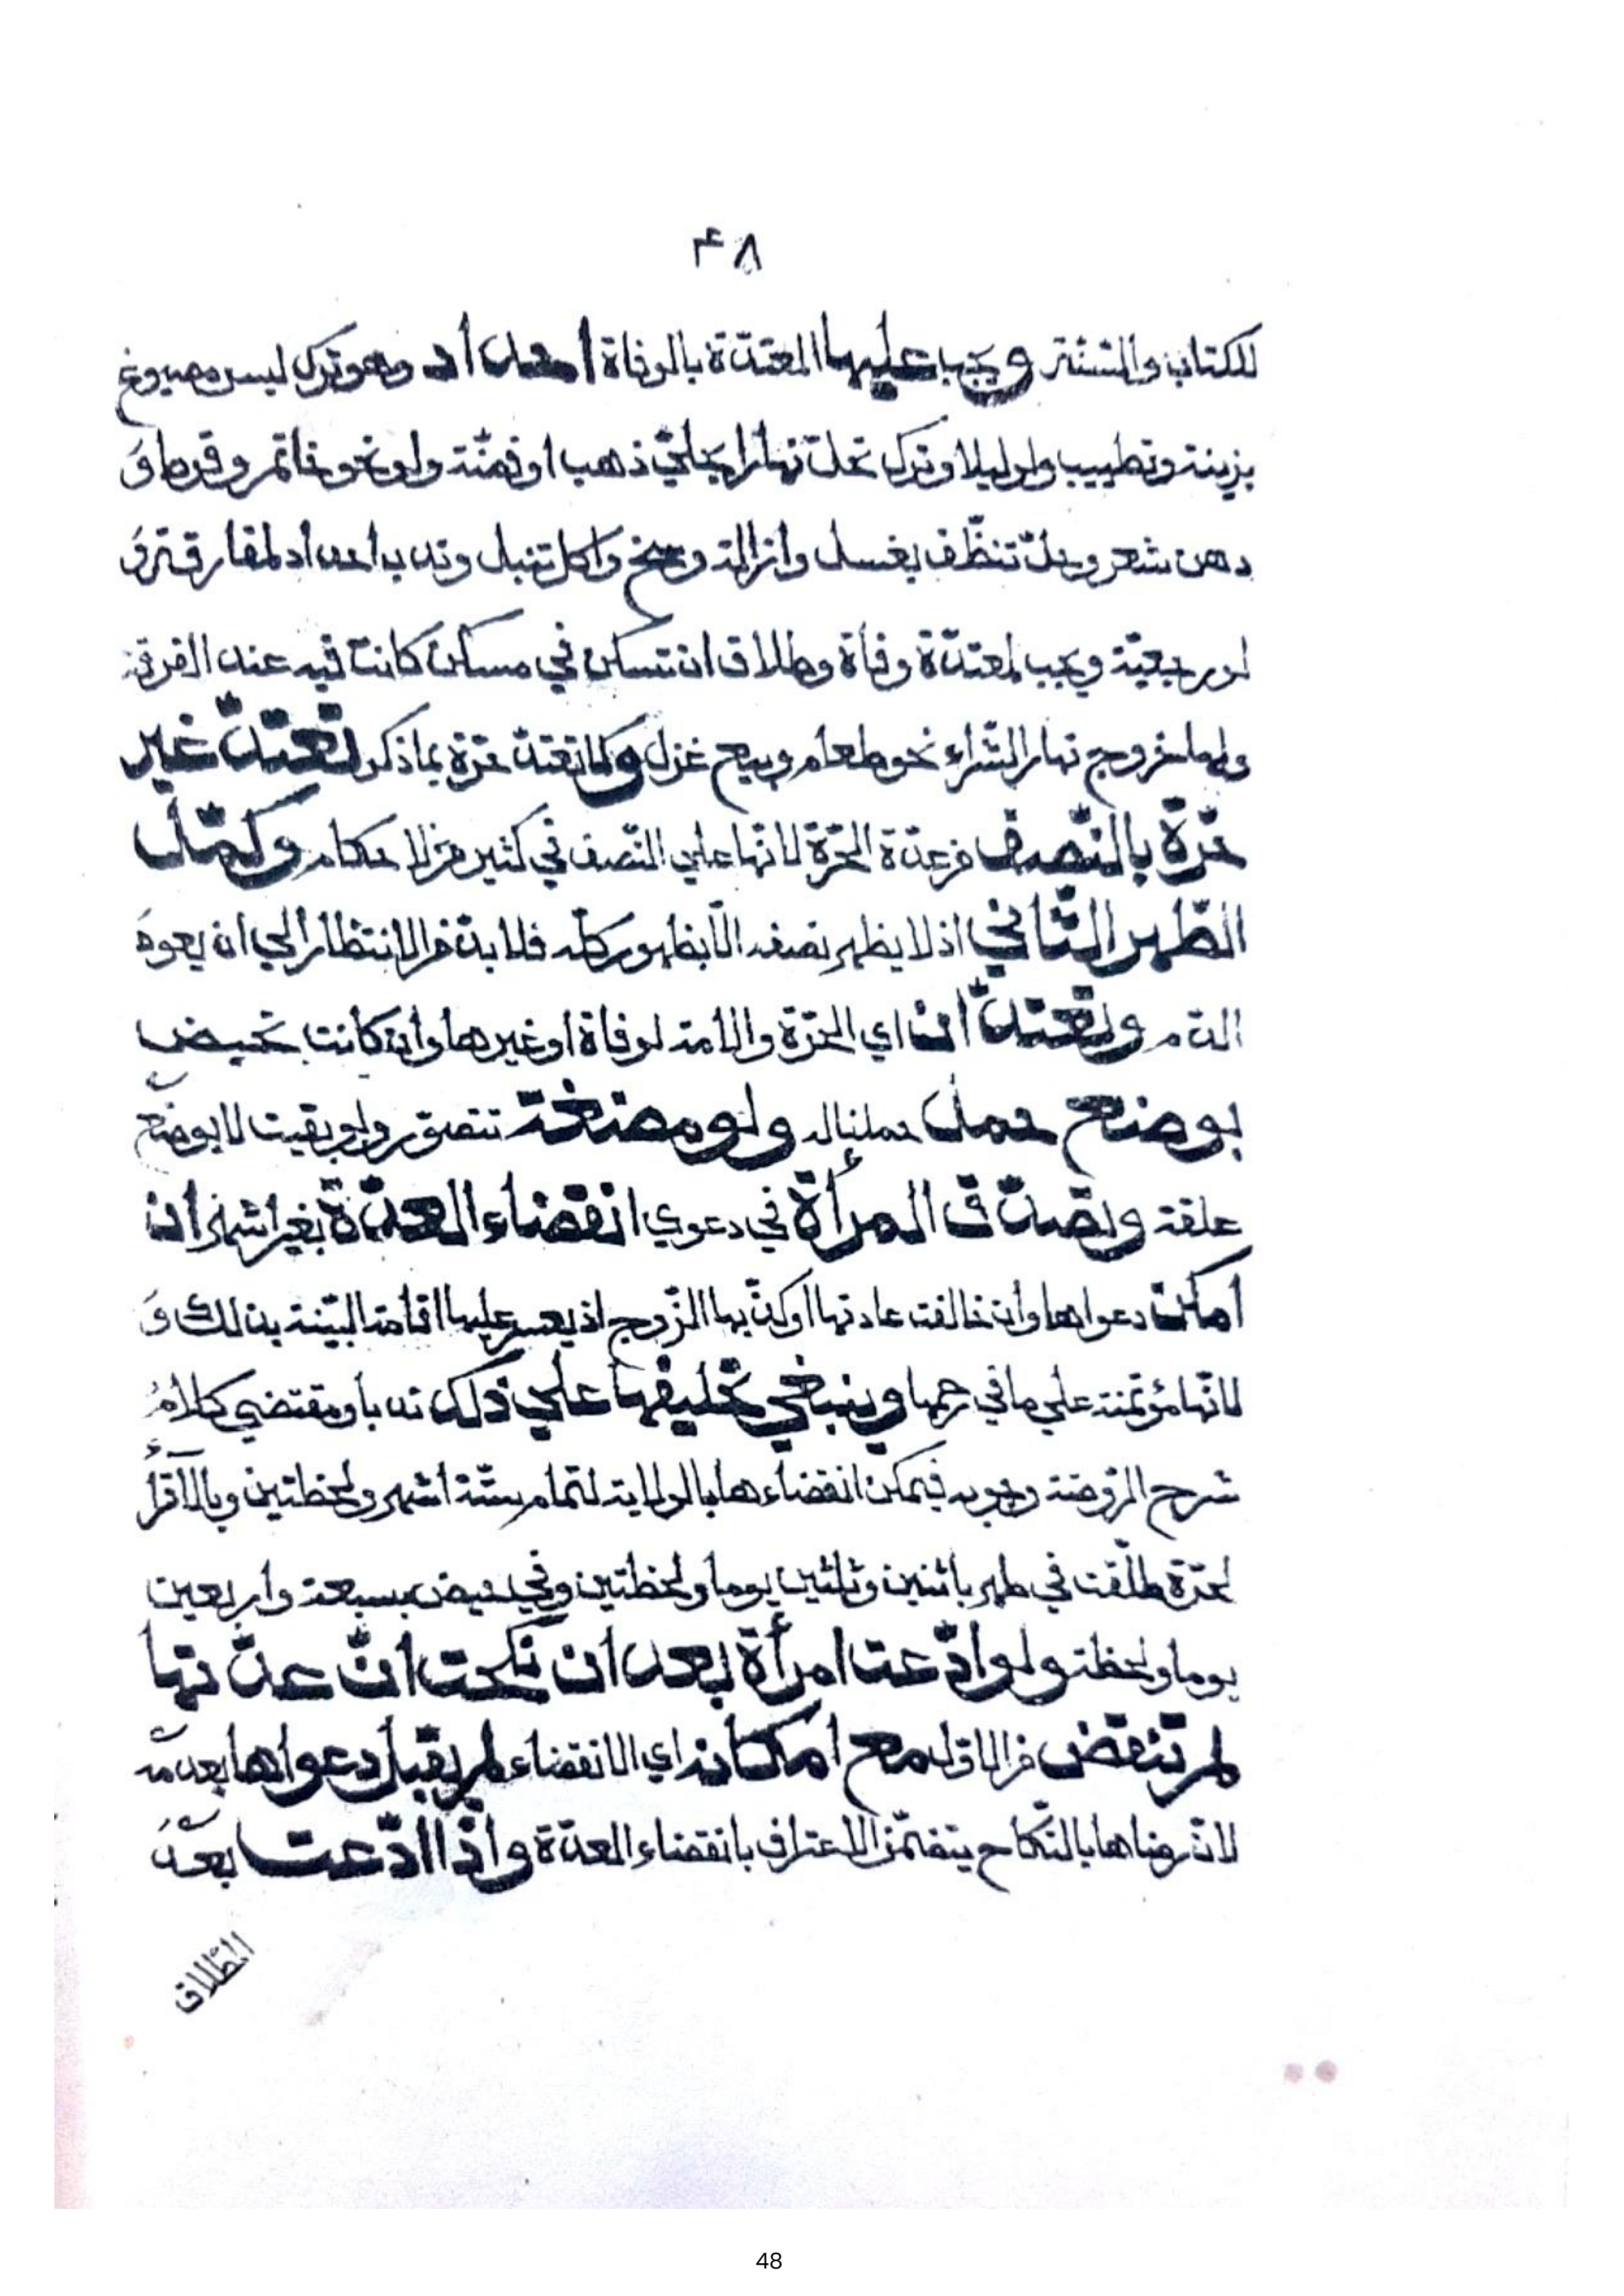 ٤٨
للكتاب والسنة و يجب عليها المعتدة بالوفاة احداد وهو ترك لبس مصبوغ
بزينة وتطييب ولو ليلا وترك تحل نهارا بحلي ذهب او فضة ولو نحو خاتم وقرط و
دهن شعر وحل تنظف بغسل وازالة وسخ واكل تنبل وندب احداد لمفارقة و
لو رجعية ويجب لمعتدة وفاة وطلاق ان تسكن في مسكن كانت فيه عند الفرقة
ولها خروج نهارا لشراء نحو طعام وبيع غزل وكما تعتد حرة بما ذكر تعتد غير
حرة بالنصف من عدة الحرة لانها علي النصف في كثير من الاحكام وكمل
الطهر الثاني اذ لا يظهر نصفه الا بظهور كله فلا بد من الانتظار الي ان يعود
الدم وتعتدان اي الحرة والامة لوفاة او غيرها وان كانت تحيض
بوضع حمل حملتاه ولو مضغة تتصور ولو بقيت لا بوضع
علقة وتصدق المرأة في دعوي انقضاء العدة بغير اشهر ان
امكن دعواها وان خالفت عادتها او كذبها الزوج اذ يعسر عليها اقامة البينة بذلك و
لانها مؤتمنة علي ما في رحمها وينبغي تحليفها علي ذلك ندبا ومقتضي كلام
شرح الروضة وجوبه فيمكن انقضاءها بالولاية لتمام ستة اشهر ولحظتين وبالاقرأ
لحرة طلقت في طهر باثنين وثلثين يوما ولحظتين وفي حيض بسبعة واربعين
يوما ولحظة ولو ادعت امرأة بعد ان نكحت ان عدتها
لم تنقض من الاول مع امكانه اي الانقضاء لم يقبل دعواها بعدمه
لان رضاها بالنكاح يتضمن الاعتراف بانقضاء العدة واذا ادعت بعد
الطلاق
48